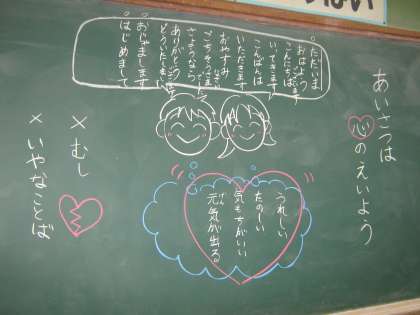 あいさつは
心のえいよう
ただいま
おはようございます
こんにちは
いってきます
こんばんは
いただきます
おやすみなさい
ごちそうさまでした
さようなら
ありがとう
どういたしまして
おじゃまします
はじめまして
うれしい
たのしい
気もちがいい
元気が出る
×むし
×いやなことば